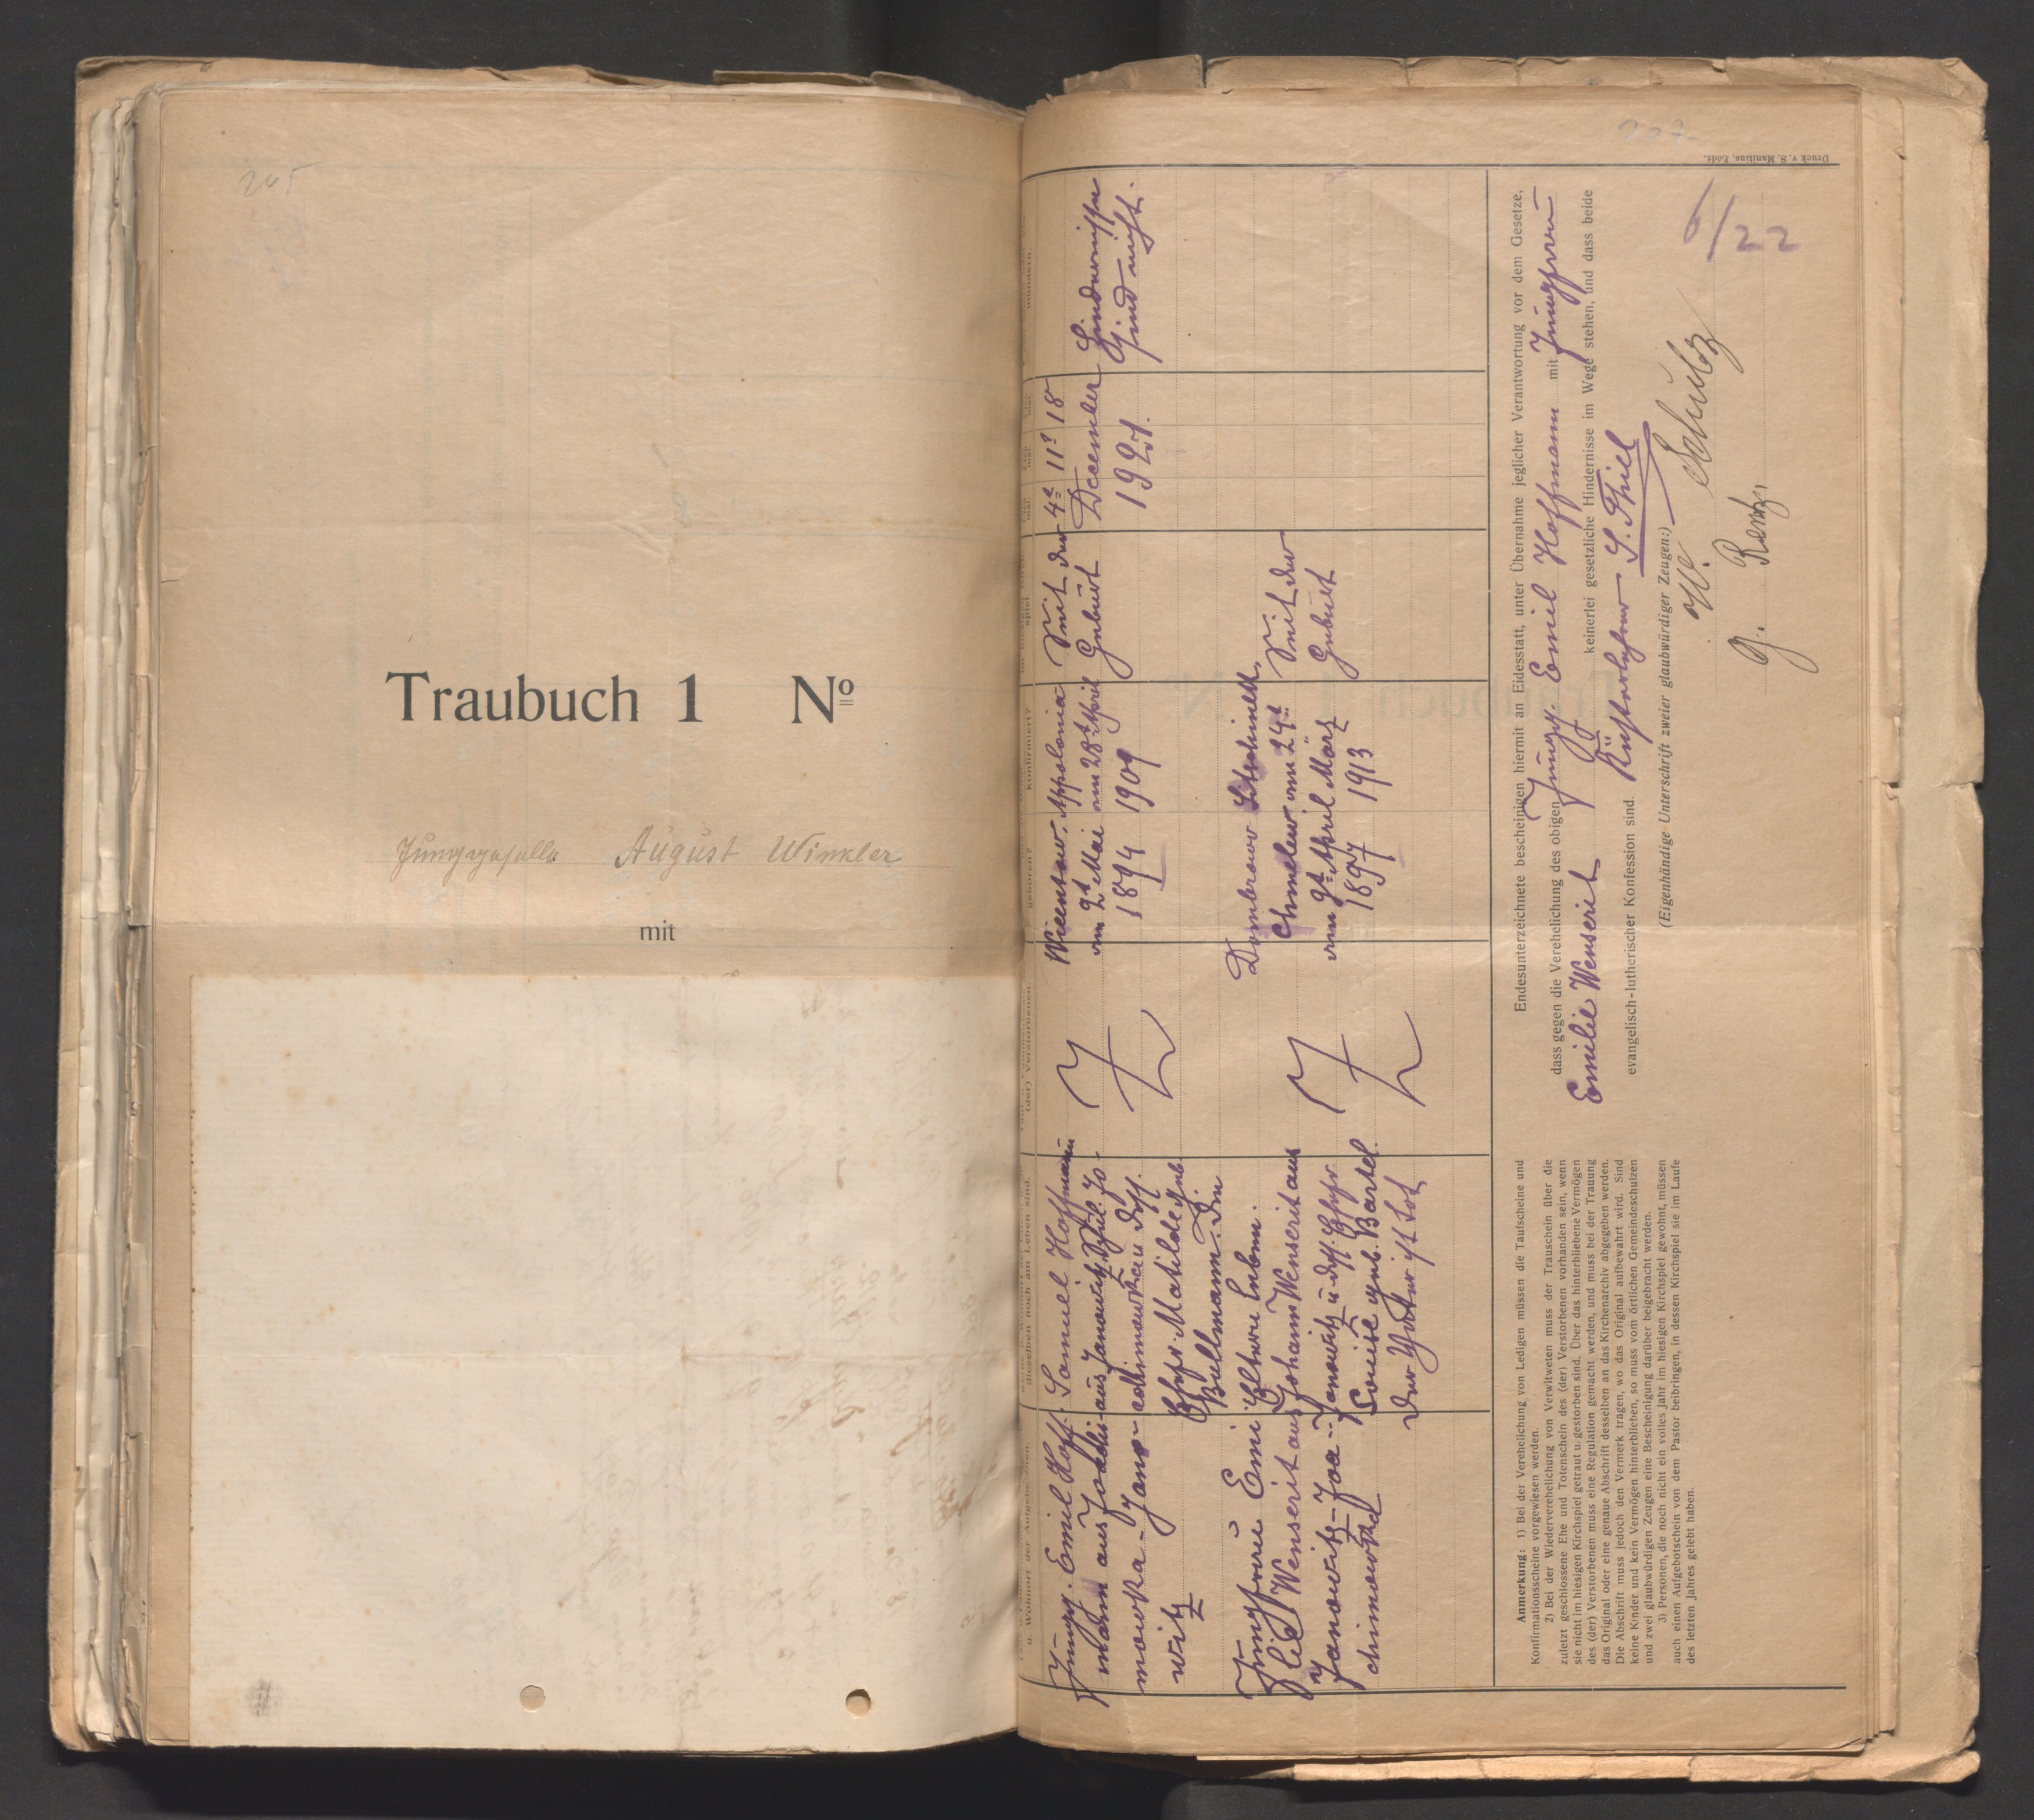 205
Traubuch 1 Nº
Junggeselle August Winkler
mit
207
Druck v. S. Manitius, Łódź.
6/22
Jungg. Emil Hoff-
mann aus Joachi-
mowka - Janow-
witz
Samuel Hoffmann
aus Janowitz, Jo-
achimowken
Ehefr. Matilde geb.
Bullmann. Die
Eltern leben.
Wiecentow. Appolonia
am 2t Mai am 28t April
1894 1909
Seit der
Geburt
4t 11t 18
December
1921.
Hindernisse
sind nicht.
Jungfrau Emi-
lie Wenserit aus
Janowitz - Joa-
chimowka
Johann Wenserit aus
Janowitz u. dess. Ehefr.
Louise geb. Bartel.
Der Vater ist tot
Dombrowo
Chmelew am 24t
am 9t April März
1897 1913
Seit der
Geburt
Endesunterzeichnete bescheinigen hiermit an Eidesstatt, unter Übernahme jeglicher Verantwortung vor dem Gesetze,
dass gegen die Verehelichung des obigen Jungg. Emil Hoffmann mit Jungfrau
Emilie Wenserit keinerlei gesetzliche Hindernisse im Wege stehen, und dass beide
evangelisch-lutherischer Konfession sind. Küsterlehrer S. Thiel
(Eigenhändige Unterschrift zweier glaubwürdiger Zeugen:)
Schulz
G. Rentz.
Anmerkung: 1) Bei der Verehelichung von Ledigen müssen die Taufscheine und
Konfirmationsscheine vorgewiesen werden.
2) Bei der Wiederverehelichung von Verwitweten muss der Trauschein über die
zuletzt geschlossene Ehe und Totenschein des (der) Verstorbenen vorhanden sein, wenn
sie nicht im hiesigen Kirchspiel getraut u. gestorben sind. Über das hinterbliebene Vermögen
des (der) Verstorbenen muss eine Regulation gemacht werden, und muss bei der Trauung
das Original oder eine genaue Abschrift desselben an das Kirchenarchiv abgegeben werden.
Die Abschrift muss jedoch den Vermerk tragen, wo das Original aufbewahrt wird. Sind
keine Kinder und kein Vermögen hinterblieben, so muss vom örtlichen Gemeindeschulzen
und zwei glaubwürdigen Zeugen eine Bescheinigung darüber beigebracht werden.
3) Personen, die noch nicht ein volles Jahr im hiesigen Kirchspiel gewohnt, müssen
auch einen Aufgebotschein von dem Pastor beibringen, in dessen Kirchspiel sie im Laufe
des letzten Jahres gelebt haben.